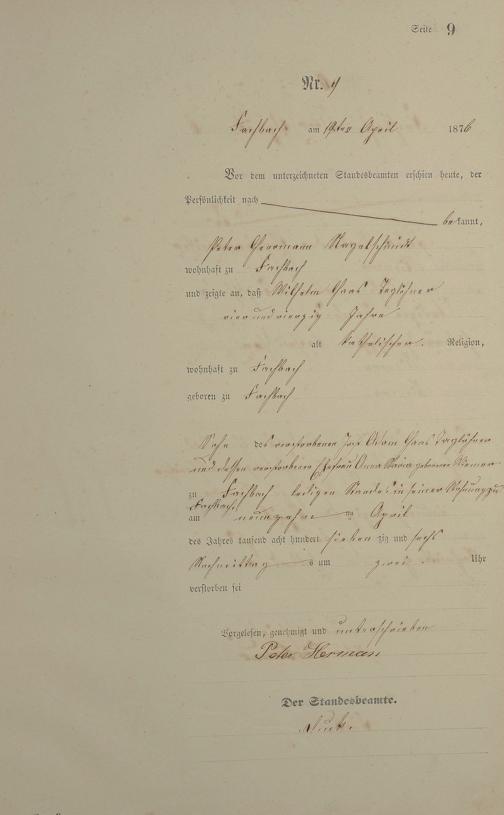 Seite 9
Nr. 9
Fachbach am 19ten April 1876
Vor dem unterzeichneten Standesbeamten erschien heute, der
Persönlichkeit nach
bekannt,
Peter Herrmann Nagelschmidt
wohnhaft zu Fachbach
und zeigte an, daß Wilhelm Haas Taglöhner
vier und vierzig Jahre
alt katholischer Religion,
wohnhaft zu Fachbach
geboren zu Fachbach
Sohn des verstorbenen Adam Haas Taglöhner
und dessen verstorbene Ehefrau Anna Maria geborene
zu Fachbach ledigen Standes in seiner Wohnung zu
Fachbach
am neunzehn ten April
des Jahres tausend acht hundert siebenzig und sechs
Nachmittags um zwei Uhr
verstorben sei
Vorgelesen, genehmigt und unterschrieben
Peter Herman
Der Standesbeamte.